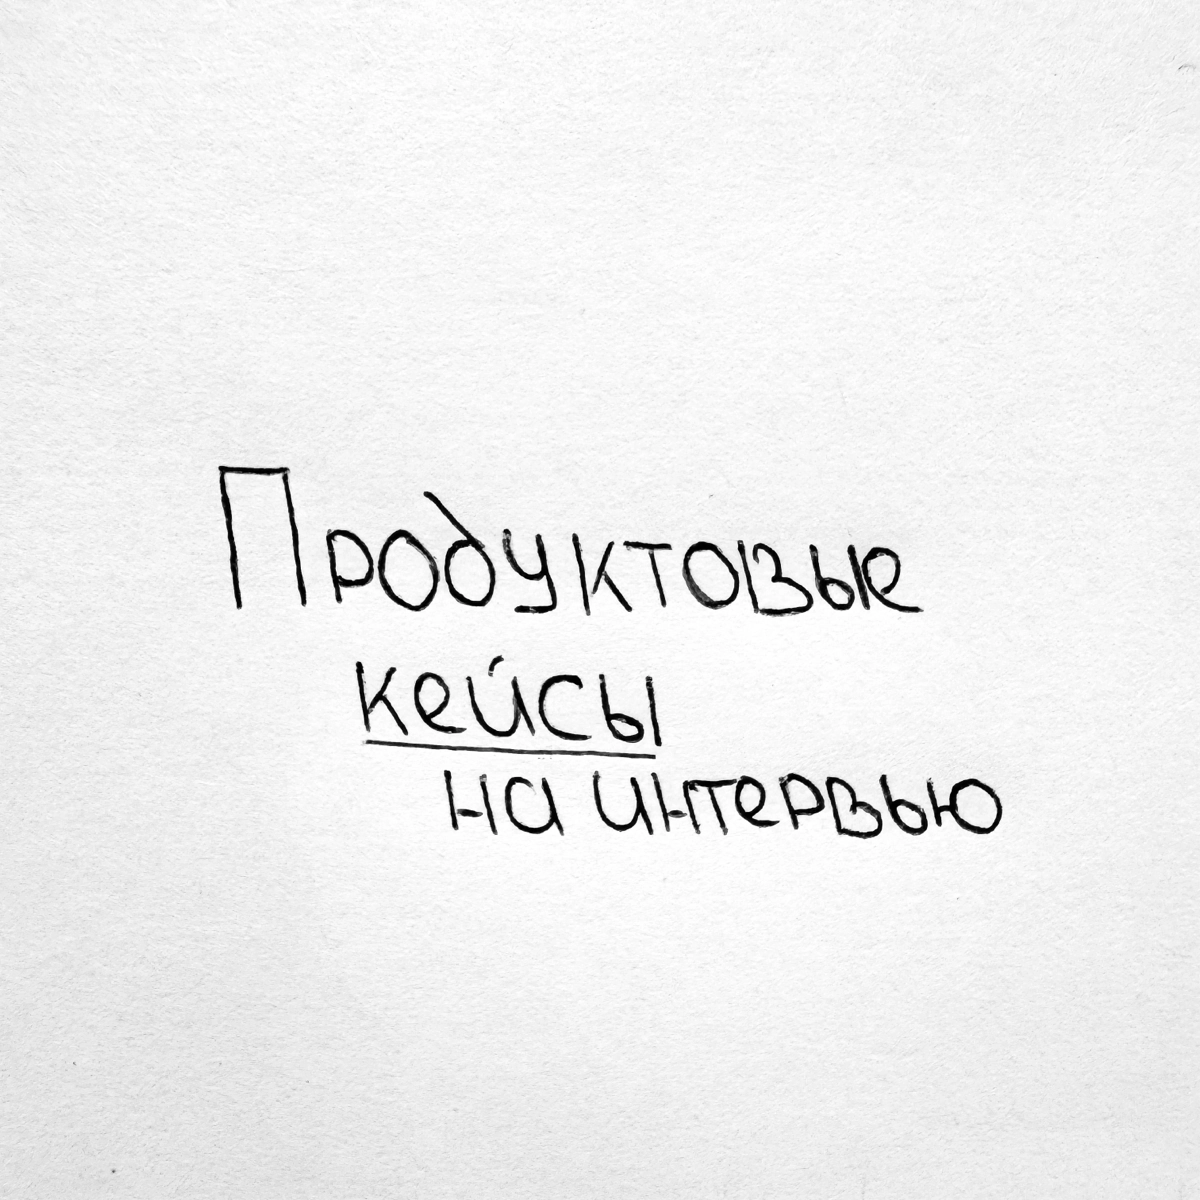 Продуктовые
кейсы
на интервью